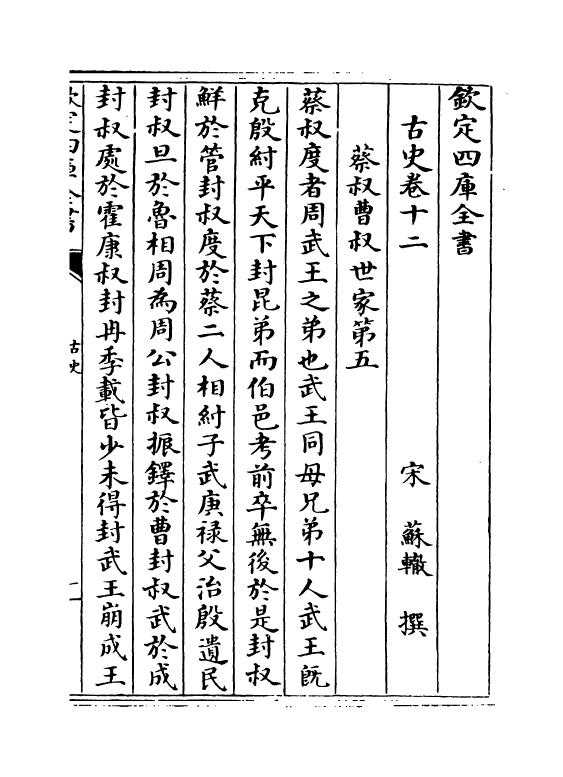 欽定四庫全書
古史卷十二　　　　　　宋　蘇轍　撰
蔡叔曹叔世家第五
蔡叔度者周武王之弟也武王同母兄弟十人武王既
克殷紂平天下封昆弟而伯邑考前卒無後於是封叔
鮮於管封叔度於蔡二人相紂子武庚祿父治殷遺民
封叔旦於魯相周為周公封叔振鐸於曹封叔武於成
封叔處於霍康叔封冉季載皆少未得封武王崩成王
欽定四庫全書
古史
一